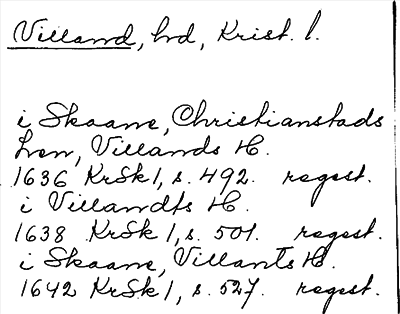 Villand, hd, Krist. l.
i Skaane, Christianstads
Len, Villands H.
1636 KrSk 1, s. 492. regest.
i Villandts H.
1638 KrSk 1, s. 501. regest.
i Skaane, Villants H.
1642 KrSk 1, s. 527. regest.